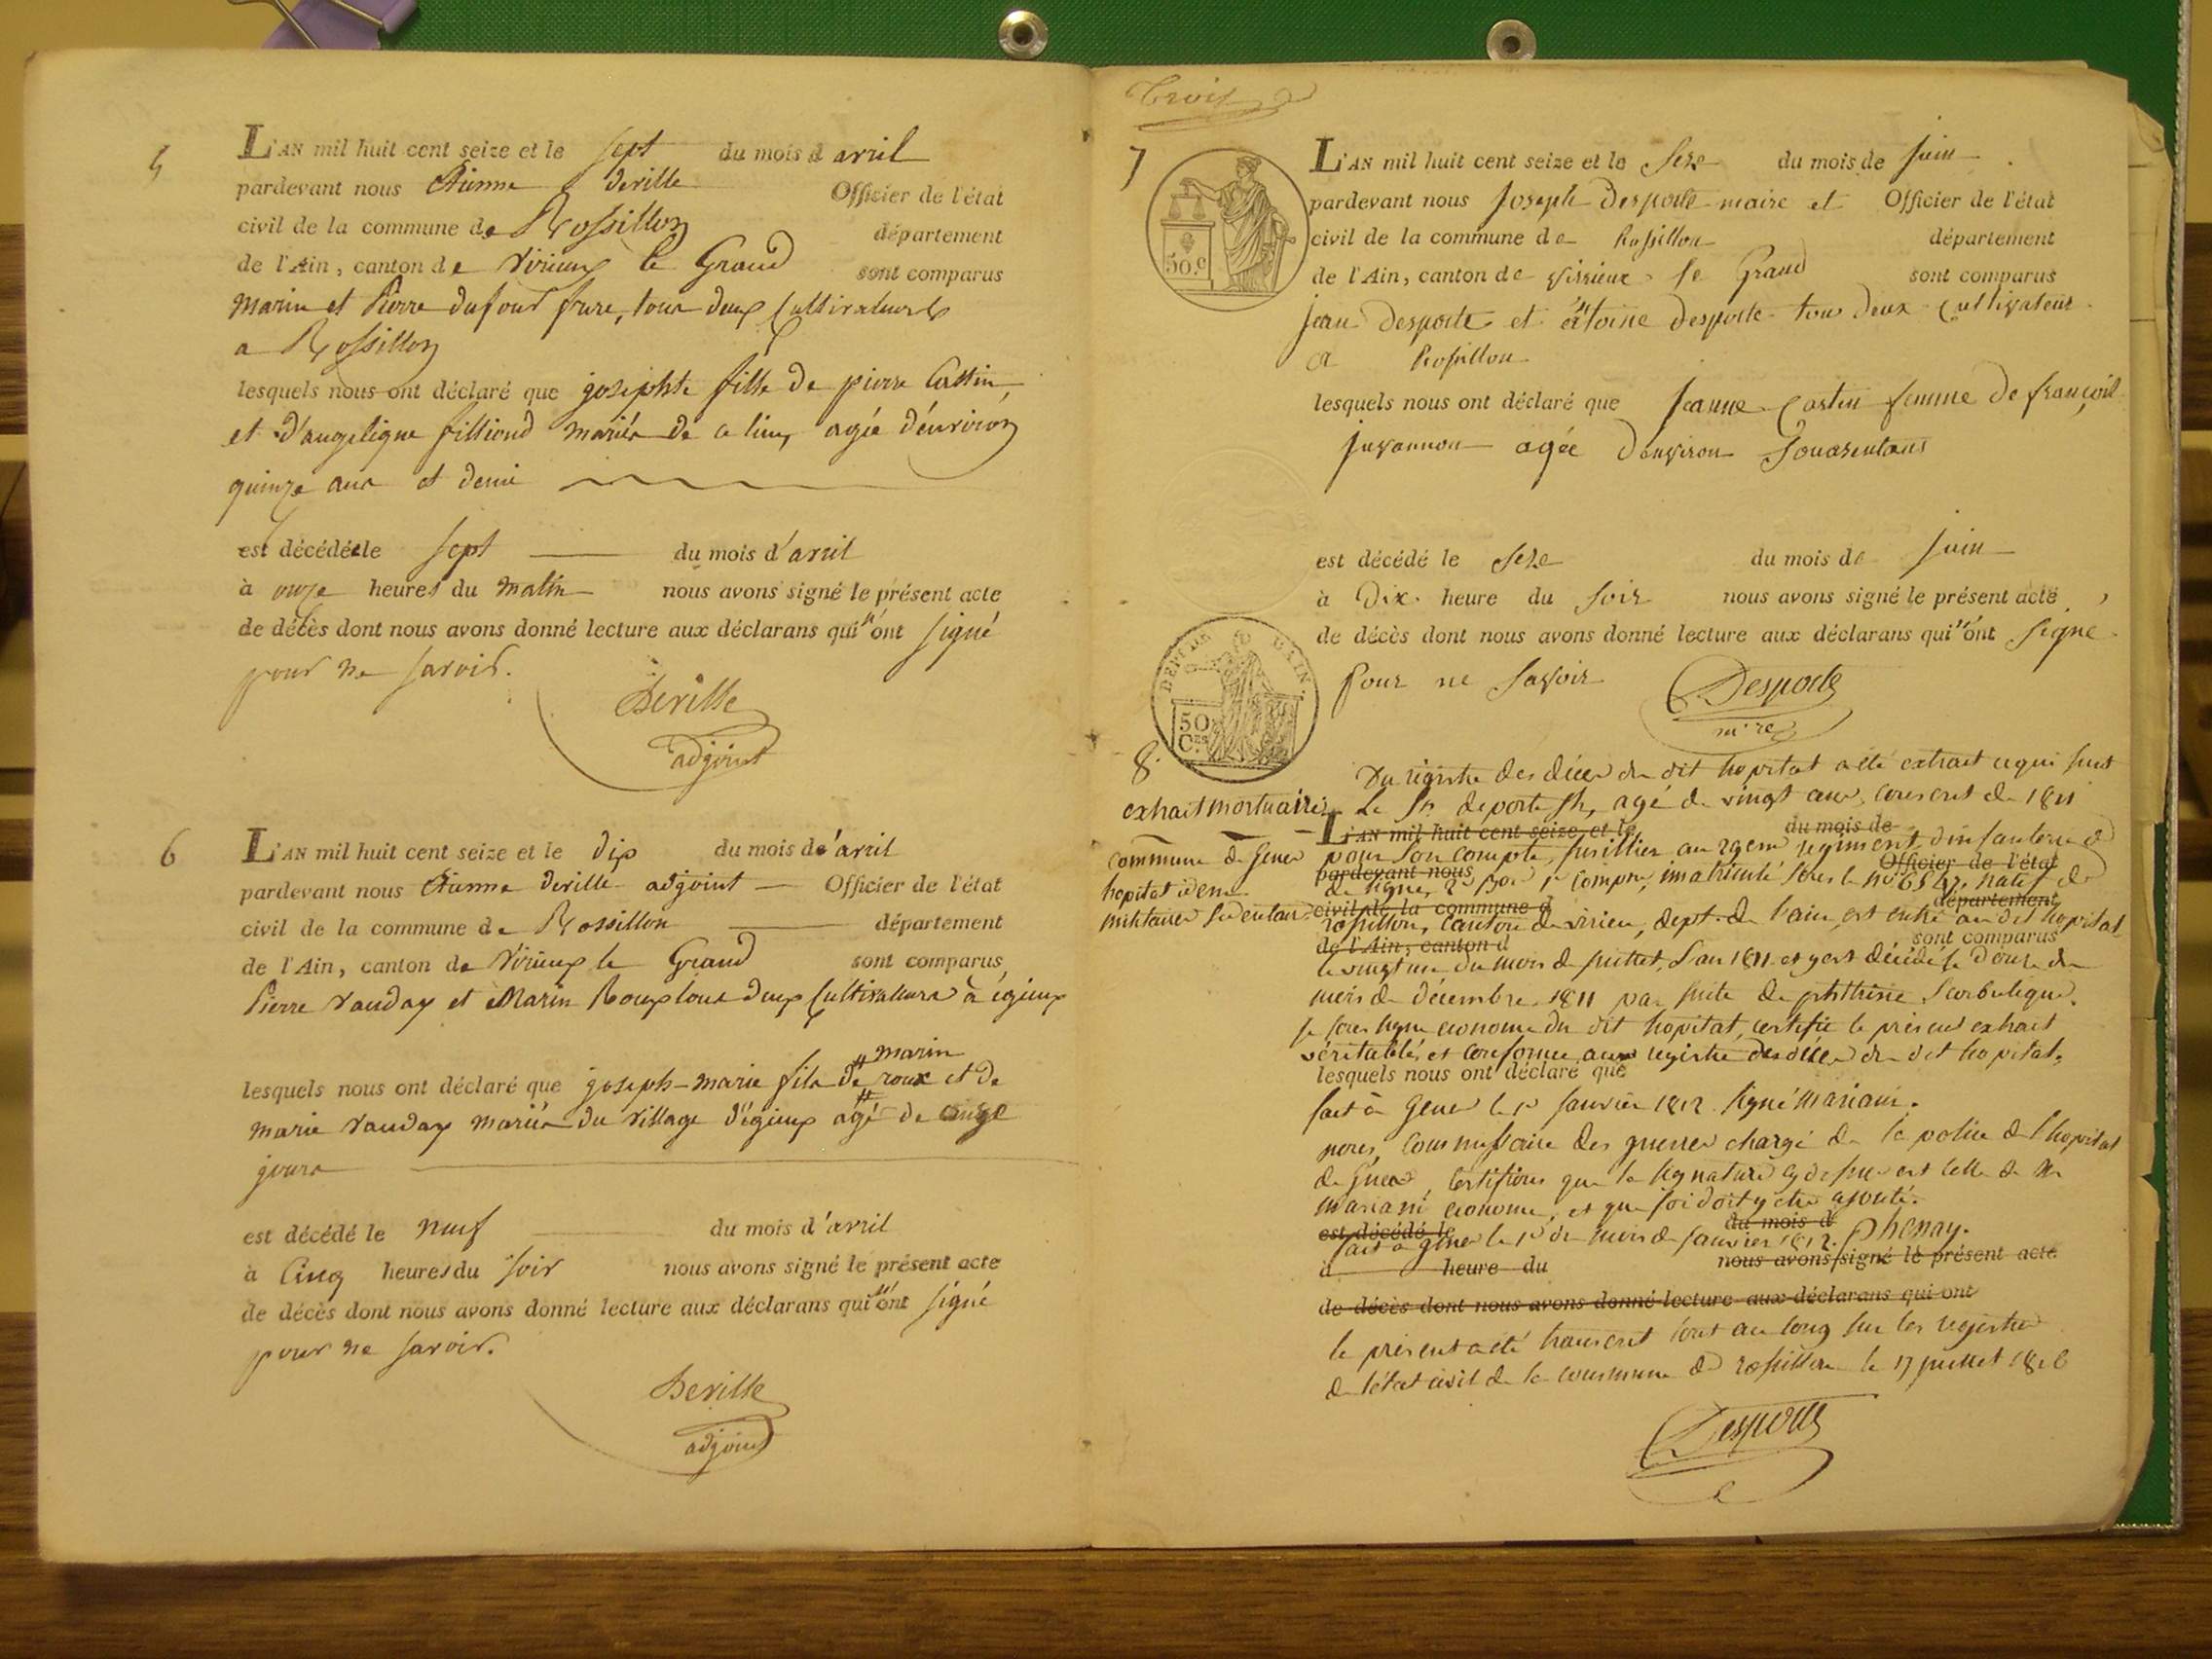 5
L'AN mil huit cent seize et le sept du mois d avril
pardevant nous Etienne Deville Officier de l'état
civil de la commune de Rossillon département
de l'Ain, canton de Virieux le Grand sont comparus
Marin et Pierre dufour frere, tous deux Cultivateurs
a Rossillon
lesquels nous ont déclaré que josephte fille de pierre Cattin,
et d'angelique filliond mariés de ce lieu, agée d'environ
quinze ans et demi
est décédée le sept du mois d'avril
à onze heures du matin nous avons signé le présent acte
de décès dont nous avons donné lecture aux déclarans qui n'ont signé
pour ne savoir.
Deville
adjoint
6
L'AN mil huit cent seize et le dix du mois de avril
pardevant nous Etienne deville adjoint Officier de l'état
civil de la commune de Rossillon département
de l'Ain, canton de Virieux le Grand sont comparus
Pierre Vauday et Marin Roux tous deux Cultivateurs à égieux
marin
lesquels nous ont déclaré que joseph-marie fils de roux et de
marie Vauday mariés du village d'égieux agé de onze
jours
est décédé le neuf du mois d'avril
à Cinq heures du soir nous avons signé le présent acte
de décès dont nous avons donné lecture aux déclarans qui n'ont signé
pour ne savoir.
Deville
adjoint
Trois
7
50.c
L'AN mil huit cent seize et le seze du mois de juin
pardevant nous Joseph Desporte maire et Officier de l'état
civil de la commune de Rossillon département
de l'Ain, canton de virrieux le Grand sont comparus
jean Desporte et antoine Desporte tous deux Cultivateur
a Rossillon
lesquels nous ont déclaré que jeanne Castin femme de françois
juvannon agée d'environ Quarentans
est décédé le seze du mois de juin
à Dix heure du soir nous avons signé le présent acte
de décès dont nous avons donné lecture aux déclarans qui n'ont signé
pour ne savoir
Desporte
mire
DEPT DE L'AIN.
50 Ces
8.
Du registre des décès du dit hopital a été extrait ce qui suit
extrait mortuaire
Le Sr. deporte Jh, agé de vingt ans, conscrit de 1811
L'AN mil huit cent seize et le du mois de
commune de Genes
pour son compte, fusillier au 29em régiment d'infanterie
pardevant nous Officier de l'état
hopital idem
de ligne, 2e bon 1e compnie, imatriculé sous le no 6547, natif de
civil de la commune d département
militaires
rossillon, canton de virieu, dept. de l'ain, est entré au dit hopital
de l'Ain, canton d sont comparus
le vingt un du mois de juillet, l'an 1811 et y est décédé le douze du
mois de décembre 1811 par suite de phthisie scorbutique.
je soussigné econome du dit hopital, certifie le présent extrait
véritable, et conforme aux registre des décès du dit hopital.
lesquels nous ont déclaré que
fait à Genes le 1er janvier 1812. signé Mariani.
nous, commissaire des guerres chargé de la police de l'hopital
de Genes, certifions que la signature cy dessus est celle de Mr
Mariani econome, et que foi doit y etre ajoutée.
est décédé le du mois d
fait à genes le 1er du mois de janvier 1812. Phenay.
à heure du nous avons signé le présent acte
de décès dont nous avons donné lecture aux déclarans qui ont
le présent a été transcrit tout au long sur les registres
de l'état civil de la commune de rossillon le 17 juillet 1816
Desporte